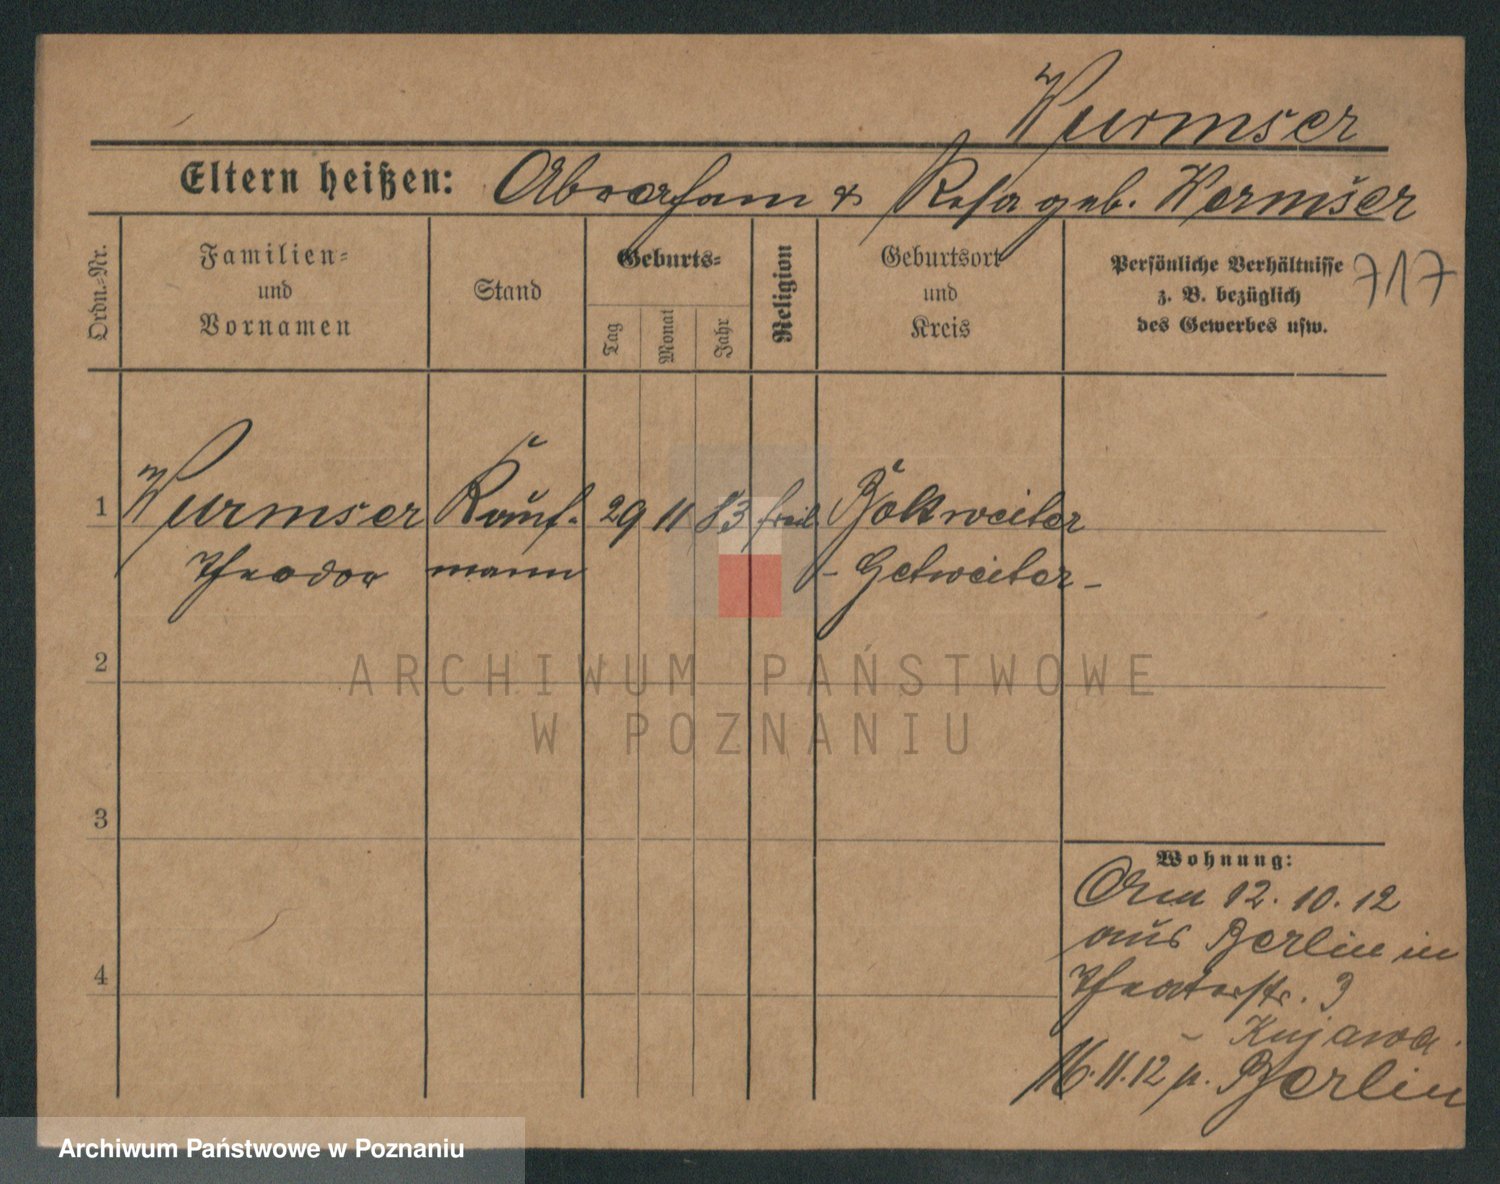 Wurmser
Eltern heißen: Abraham & Rosa geb. Wormser
Ordn.-Nr.
Familien-
und
Vornamen
Stand
Geburts-
Tag
Monat
Jahr
Religion
Geburtsort
und
Kreis
Persönliche Verhältnisse
z. B. bezüglich
des Gewerbes usw.
717
1 Wurmser Kauf- 29 11 83
Theodor mann
- Getweiler -
2
3
4
Wohnung:
Am 12.10.12
aus Berlin in
Theaterstr. 3
- Kujawa.
16.11.12 n. Berlin
ARCHIWUM PAŃSTWOWE
W POZNANIU
Archiwum Państwowe w Poznaniu